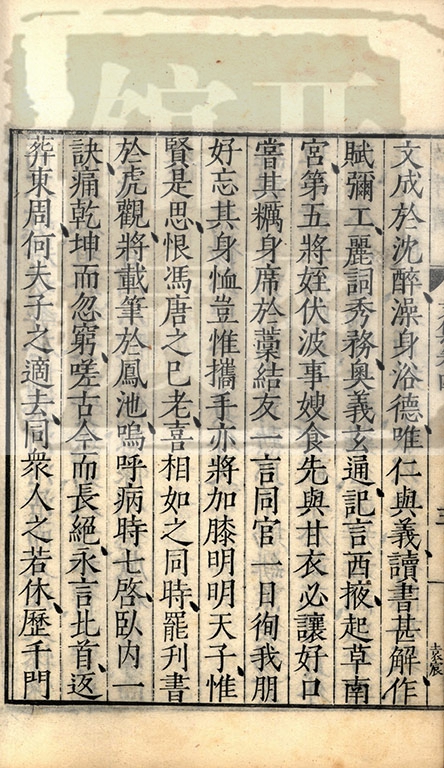 文成於沈醉澡身浴德唯仁與義讀書甚解作
賦彌工麗詞秀務奧義玄通記言西掖起草南
宮第五將姪伏波事嫂食先與甘衣必讓好口
嘗其糲身席於藁結友一言同官一日徇我朋
好忘其身恤豈惟攜手亦將加膝明明天子惟
賢是思恨馮唐之已老喜相如之同時罷刊書
於虎觀將載筆於鳳池嗚呼病時七啓臥内一
訣痛乾坤而忽窮嗟古今而長絕永言比首返
葬東周何夫子之適去同衆人之若休歷千門